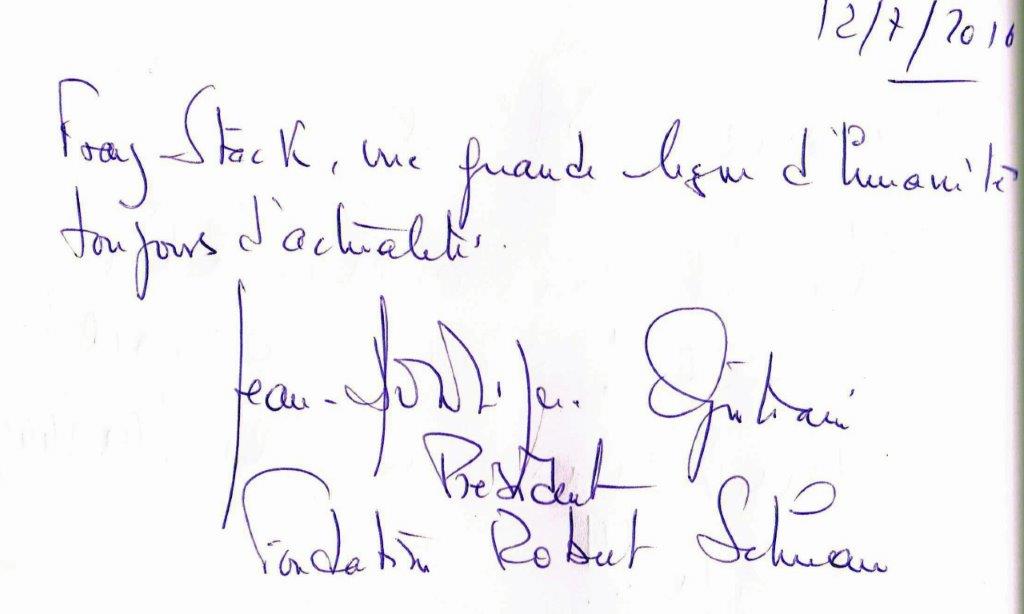 12/7/2016
Frong Stock, une grande leçon d'humanité
toujours d'actualité.
Jean-Dominique Giuliani
Président
Fondation Robert Schuman